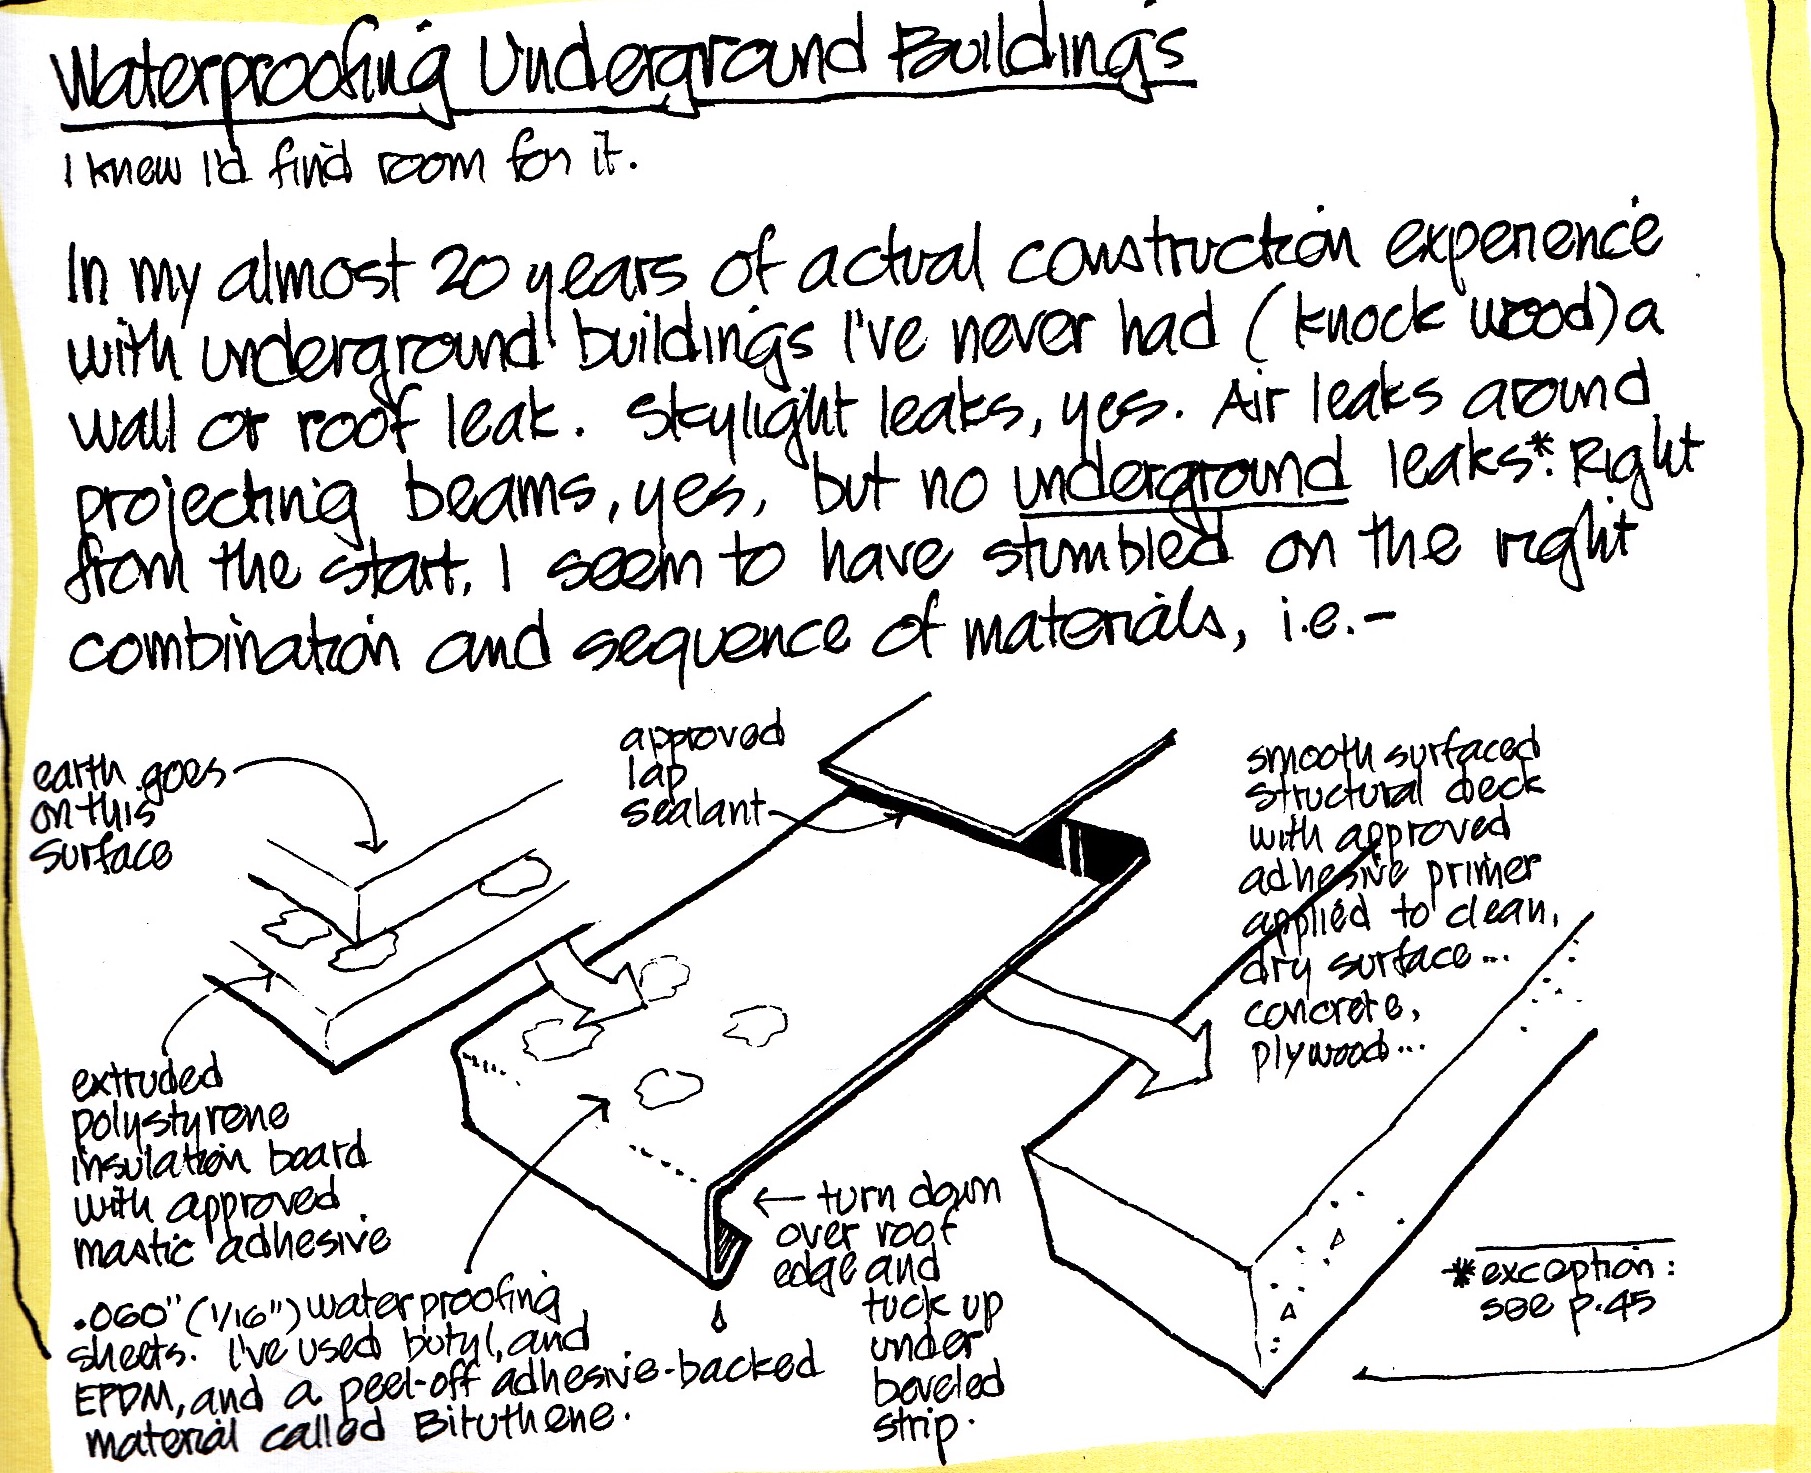 Waterproofing Underground Buildings
I knew I'd find room for it.
In my almost 20 years of actual construction experience
with underground buildings I've never had (knock wood) a
wall or roof leak. Skylight leaks, yes. Air leaks around
projecting beams, yes, but no underground leaks*. Right
from the start, I seem to have stumbled on the right
combination and sequence of materials, i.e.-
earth goes
on this
surface
approved
lap
sealant
smooth surfaced
structural deck
with approved
adhesive primer
applied to clean,
dry surface...
concrete,
plywood...
extruded
polystyrene
insulation board
with approved
mastic adhesive
.060" (1/16") waterproofing
sheets. I've used butyl, and
EPDM, and a peel-off adhesive-backed
material called Bituthene.
← turn down
over roof
edge and
tuck up
under
beveled
strip.
*exception:
see p.45